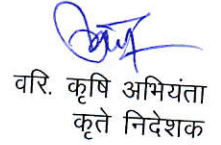 वरि. कृषि अभियंता
कृते निदेशक